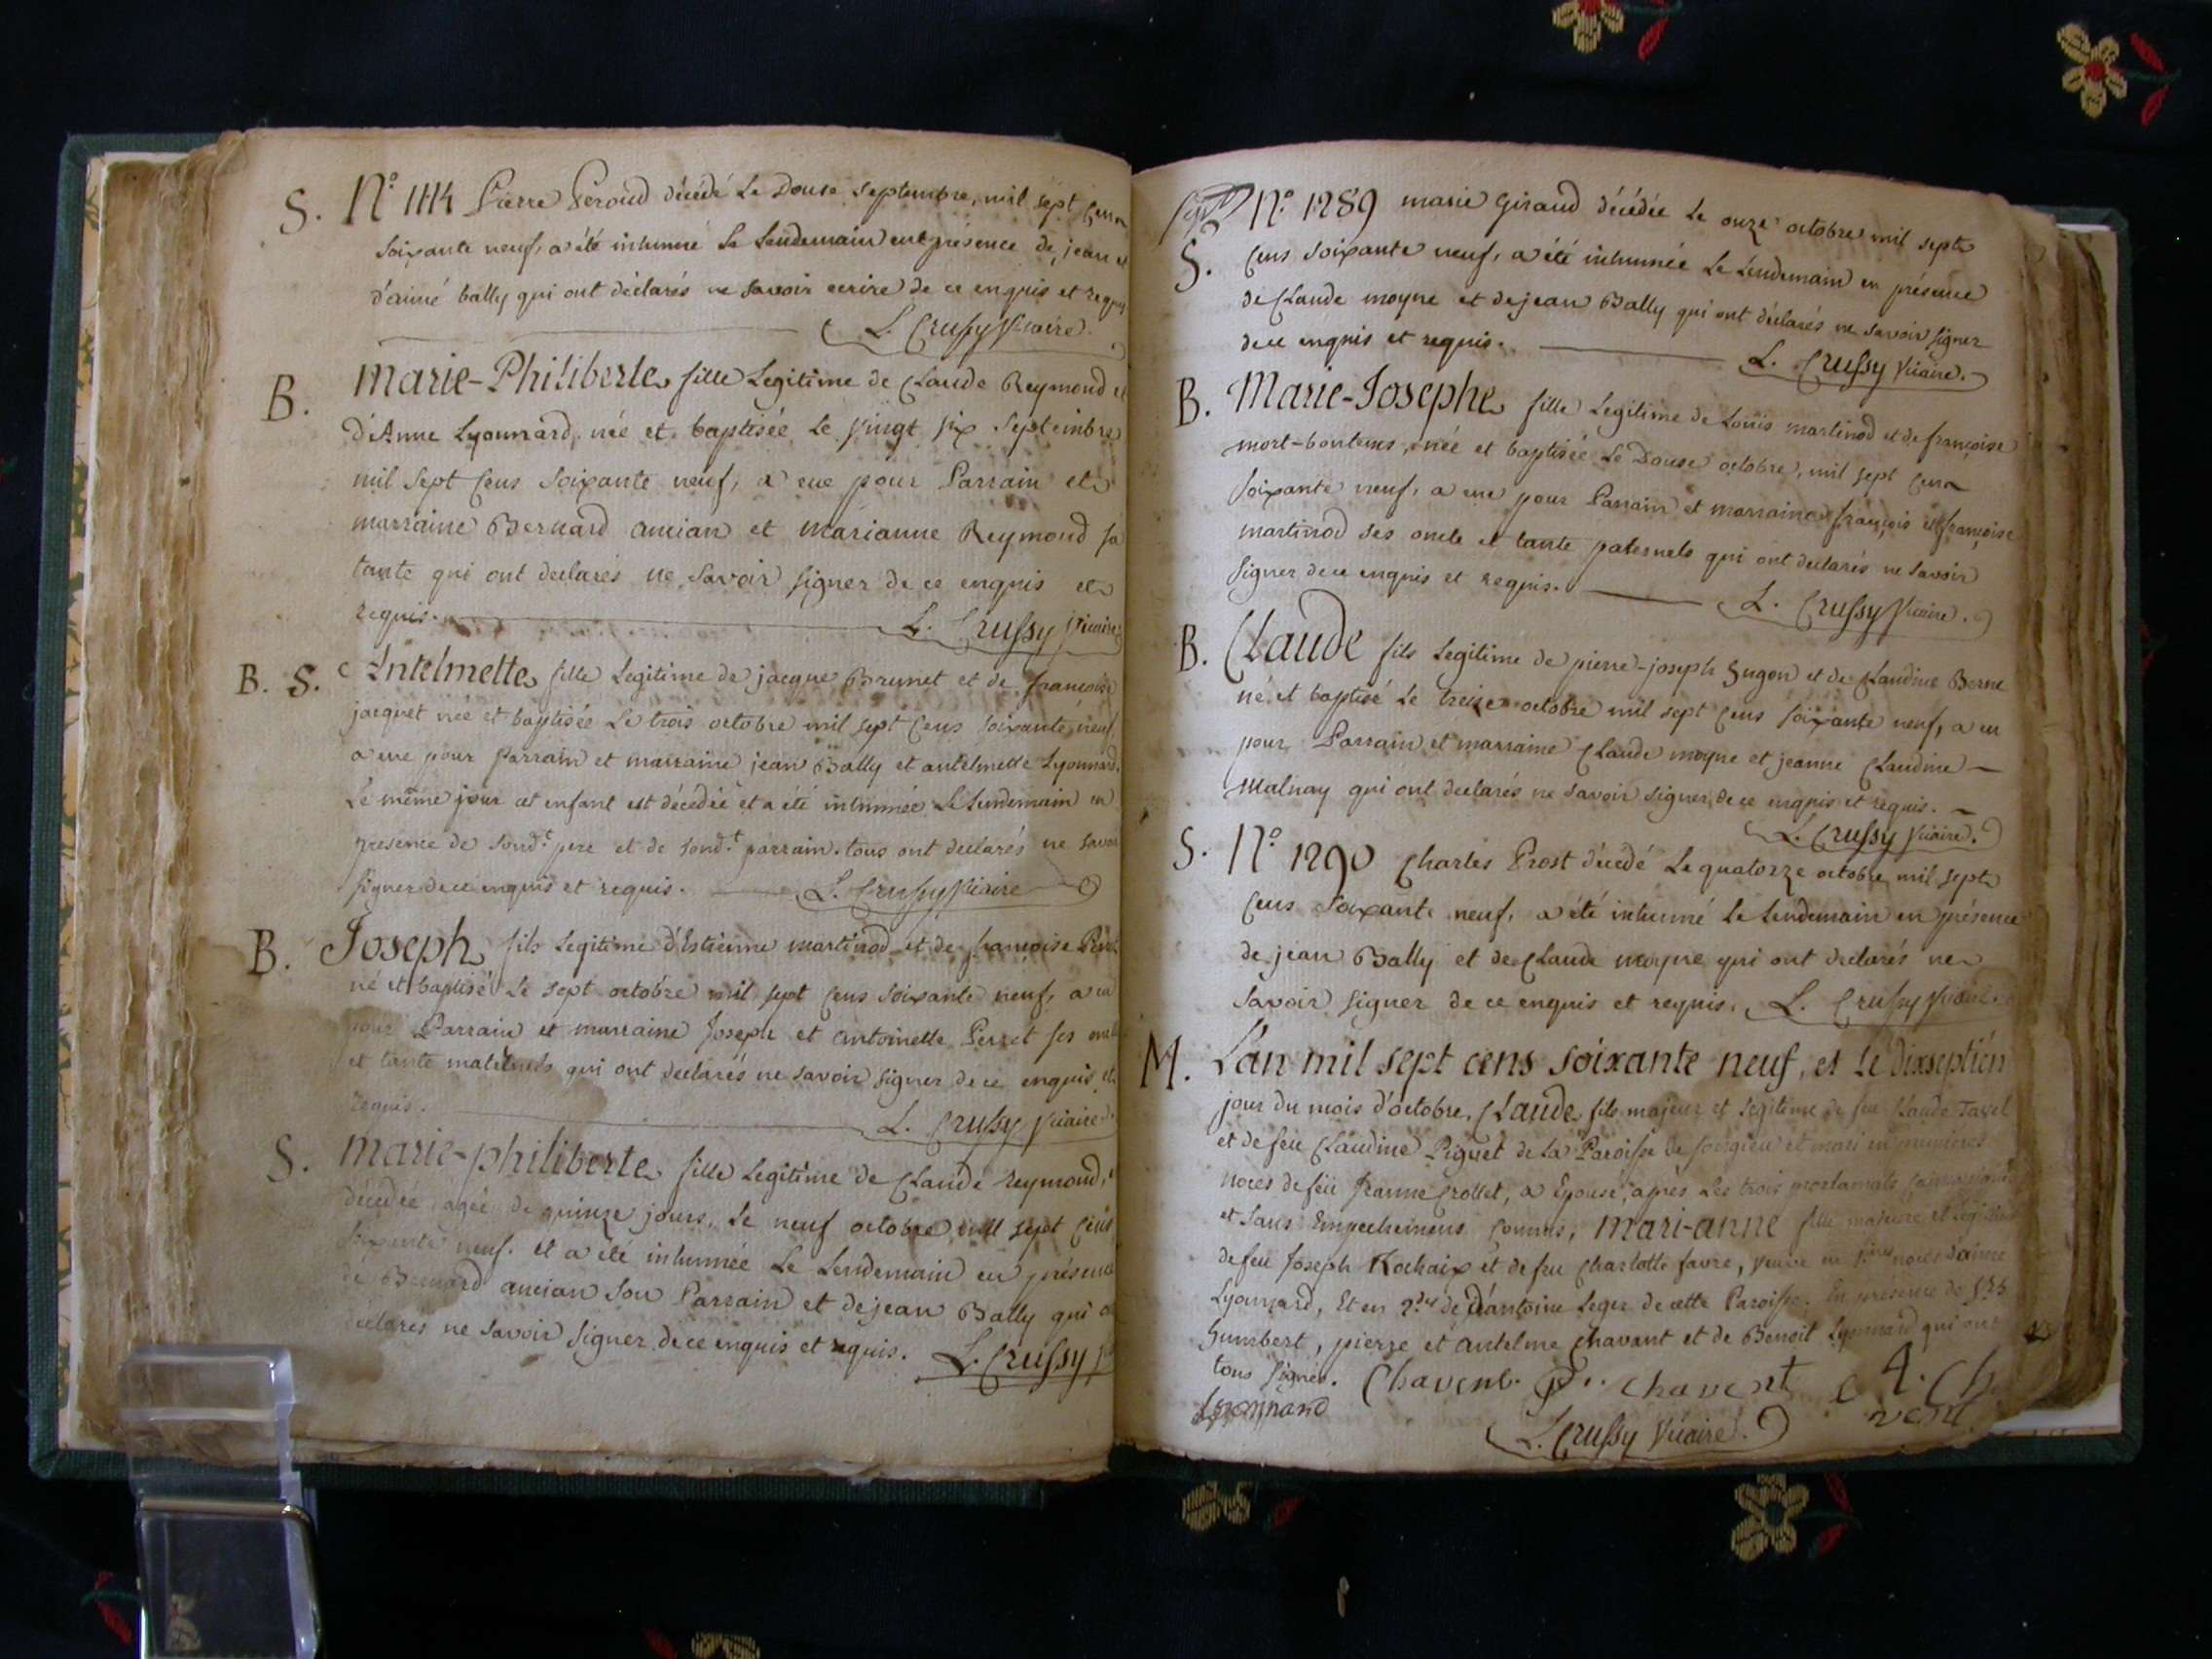 S. N.º 1114 Pierre Peroud décédé Le Douse septembre, mil sept cens
soixante neuf, a été inhumé Le Lendemain en présence de jean et
d'aimé bally qui ont déclarés ne savoir ecrire de ce enquis et requis
L. Crussy Vicaire.
B. Marie-Philiberte fille Legitime de Claude Reymond et
d'Anne Lyonnard, née et baptisée Le vingt six Septembre
mil sept cens soixante neuf, a eue pour Parrain et
marraine Bernard ancian et marianne Reymond sa
tante qui ont declarés ne savoir signer de ce enquis et
requis. L. Crussy Vicaire
B. S. Antelmette fille Legitime de jacque Brunet et de francoise
jacquet née et baptisée Le trois octobre mil sept cens soixante neuf,
a eue pour parrain et marraine jean Bally et antelmette Lyonnard.
Le même jour cet enfant est décédée et a été inhumée Le Lendemain en
presence de sond.t pere et de sond.t parrain. tous ont declarés ne savoir
signer de ce enquis et requis. L. Crussy Vicaire
B. Joseph fils Legitime d'Estienne martinod et de francoise
né et baptisé Le sept octobre mil sept cens soixante neuf, a eu
pour Parrain et marraine Joseph et antoinette Perret ses oncle
et tante maternels qui ont declarés ne savoir signer de ce enquis et
requis. L. Crussy Vicaire.
S. marie-philiberte fille Legitime de Claude Reymond,
décédée agée de quinze jours, Le neuf octobre mil sept cens
soixante neuf. et a été inhumée Le Lendemain en présence
de Bernard ancian son Parrain et de jean Bally qui ont
déclarés ne savoir signer de ce enquis et requis. L. Crussy
N.º 1289 marie Giraud décédée Le onze octobre mil sept
S. cens soixante neuf, a été inhumée Le Lendemain en présence
de Claude moyne et de jean Bally qui ont déclarés ne savoir signer
de ce enquis et requis. L. Crussy Vicaire.
B. Marie-Josephe fille Legitime de Loüis martinod et de françoise
mort-bontems, née et baptisée Le Douse octobre, mil sept cens
soixante neuf, a eue pour Parrain et marraine françois et françoise
martinod ses oncle et tante paternels qui ont declarés ne savoir
signer de ce enquis et requis. L. Crussy Vicaire.
B. Claude fils Legitime de pierre-joseph Hugon et de Claudine Berne
né et baptisé Le treize octobre mil sept cens soixante neuf, a eu
pour Parrain et marraine Claude moyne et jeanne Claudine
malnay qui ont declarés ne savoir signer de ce enquis et requis.
L. Crussy Vicaire.
S. N.º 1290 Charles Prost décédé Le quatorze octobre mil sept
cens soixante neuf, a été inhumé Le Lendemain en présence
de jean Bally et de Claude moyne qui ont declarés ne
savoir signer de ce enquis et requis. L. Crussy Vicaire
M. L'an mil sept cens soixante neuf, et Le dixseptièm
jour du mois d'octobre, Claude fils majeur et Legitime de feu Claude Tavel
et de feu Claudine Piguet de La Paroisse de et mari en premieres
noces de feüe Jeanne Crollet, a Epousé, après Les trois proclamats
et sans Empechemens connus, Mari-anne fille majeure et Legitime
de feu Joseph Rochaix et de feu Charlotte favre, veuve en 1.res noces d'aimé
Lyonnard, Et en 2.des de d'antoine Leger de cette Paroisse. En présence de
Humbert, pierre et antelme Chavent et de Benoit Lyonnard qui ont
tous signés. Chavent. P. Chavent A. Cha
Lyonnard vent
L. Crussy Vicaire.